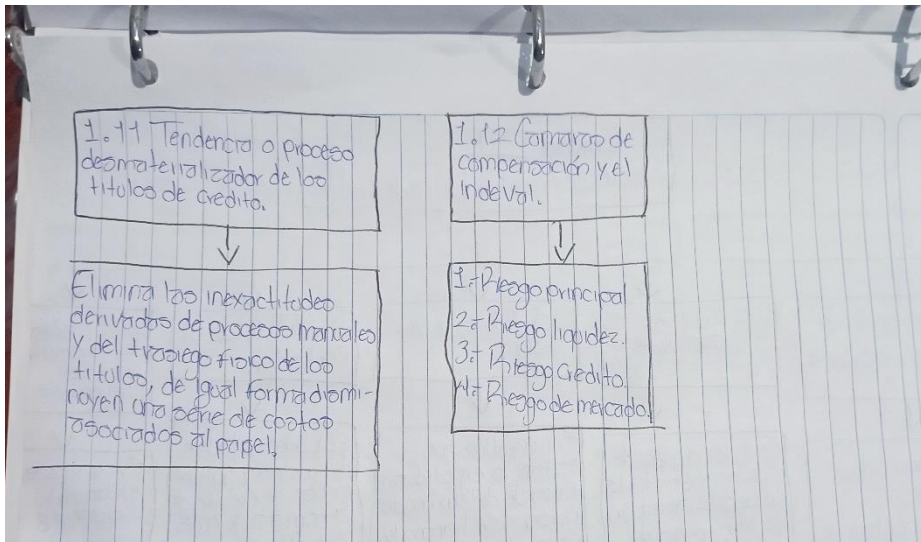 1.11 Tendencia o proceso
desmaterializador de los
titulos de credito.
Elimina las inexactitudes
derivados de procesos manuales
y del trasiego fisico de los
titulos, de igual forma dismi-
nuyen una serie de costos
asociados al papel.
1.12 Camaras de
compensación y el
indeval.
1.- Riesgo principal
2.- Riesgo liquidez.
3.- Riesgo Credito.
4.- Riesgo de mercado.